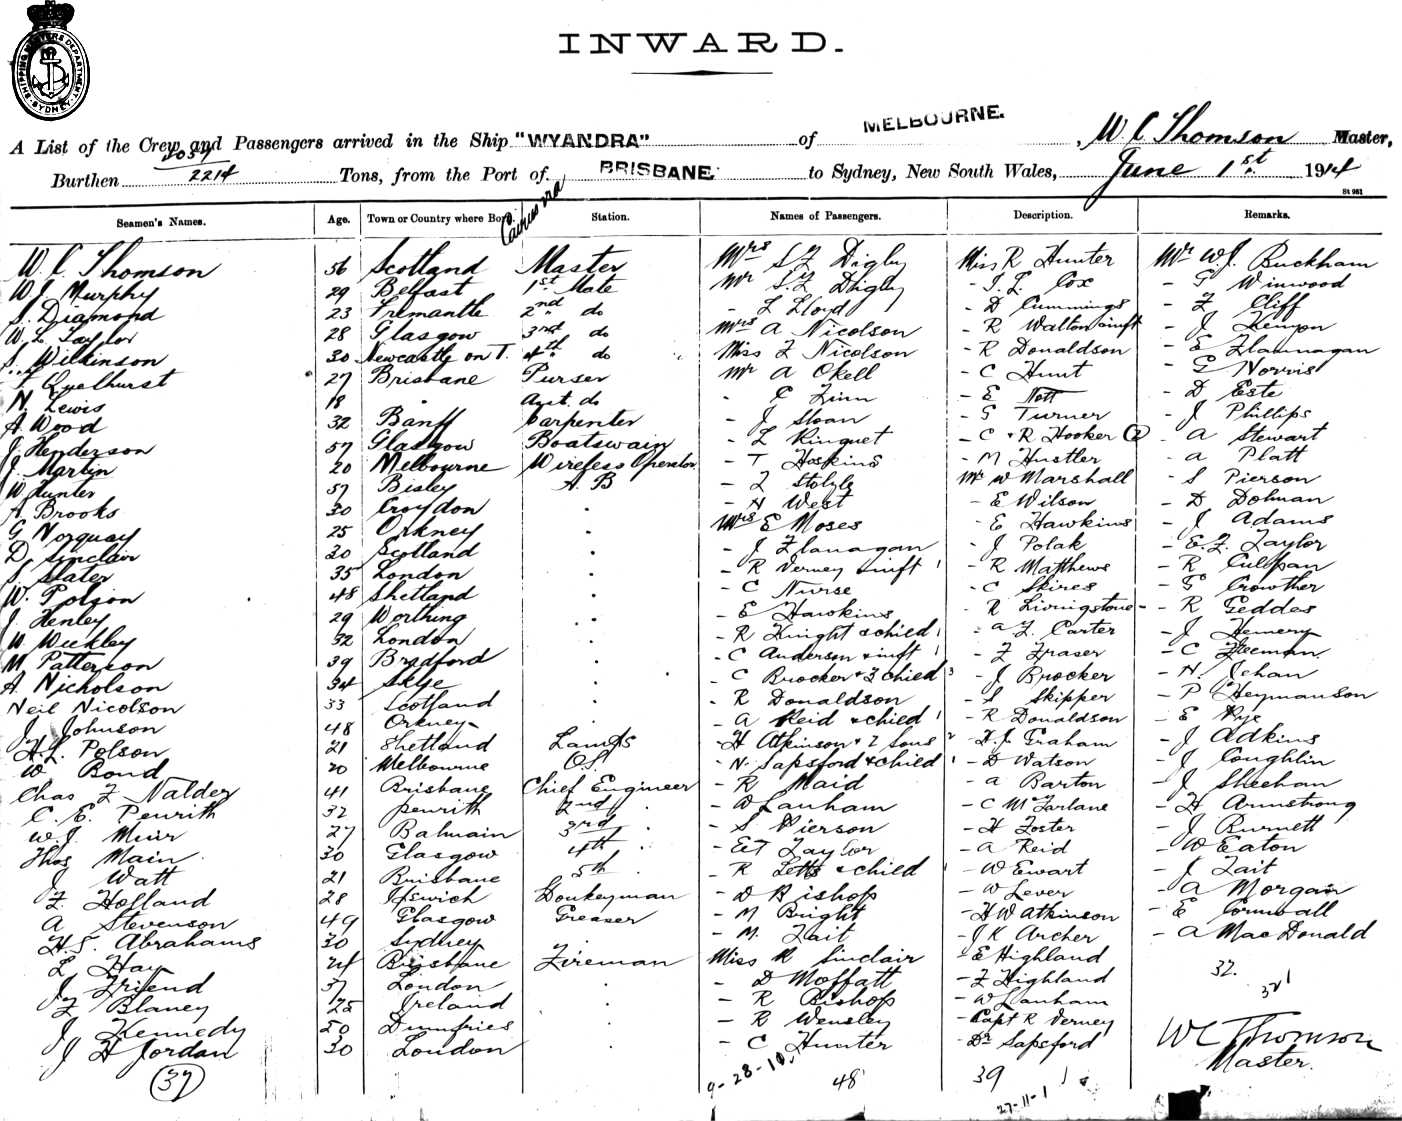 SHIPPING MASTERS DEPARTMENT SYDNEY
INWARD.
A List of the Crew and Passengers arrived in the Ship "WYANDRA" of MELBOURNE. , W. C Thomson Master,
Burthen 2214 Tons, from the Port of BRISBANE to Sydney, New South Wales, June 1st 1914
St 981
Seamen's Names. Age. Town or Country where Born. Station. Names of Passengers. Description. Remarks.
W. C. Thomson 56 Scotland Master Mrs S Z Digby Miss R Hunter Mr W J. Buckham
W J Murphy 29 Belfast 1st Mate Mr S. Z Digby - Cox - G Winwood
S. Diamond 23 Fremantle 2nd do - L Lloyd - D Cummings - F Cliff
W. L. Taylor 28 Glasgow 3rd do Mrs A Nicolson - R Walton & inft - J Kenyon
S. Wilkinson 30 Newcastle on T. 4th do Miss F Nicolson - R Donaldson - E Flannagan
27 Brisbane Purser Mr A Okell - C Hunt - G Norris
N. Lewis 18 " Asst. do - Finn - E Nott - D Este
A Wood 32 Banff Carpenter - J Sloan - G Turner - J Phillips
J Henderson 57 Glasgow Boatswain - L - C & R Hooker (2) - A Stewart
J Martin 20 Melbourne Wireless Operator - T Hoskins - M Hustler - A Platt
W Hunter 57 Bisley A. B - F Mr W Marshall - S Pierson
A Brooks 30 Croydon - H West - E Wilson - D Dolman
G Norquay 25 Orkney Mrs E Moses - E Hawkins - J Adams
D Sinclair 30 Scotland - J Flanagan - J Polak - E. F. Taylor
S. Slater 35 London - R Verney & inft 1 - R Matthews - R Culpan
W. Polson 48 Shetland - C Nurse - C Skires - G Crowther
J. Henley 29 Worthing - E Hawkins - R Livingstone - R Geddes
W Weekley 32 London - R Knight & child 1 - A F. Carter - J Hemery
M. Patterson 39 Bradford - C Anderson & inft 1 - F Fraser - C Freeman
A. Nicholson 34 Skye - C Brocker & 3 child 3 - J Brocker - H. Jehan
Neil Nicolson 33 Scotland - R Donaldson - S Skipper - P Heymanson
J Johnson 48 Orkney - A Reid & child 1 - R Donaldson - E Pye
H. L. Polson 21 Shetland Lamps - H Atkinson & 2 Sons 2 - H. J. Graham - J Adkins
W Bond 20 Melbourne O.S. - N. Sapsford & child 1 - D Watson - J Coughlin
Chas F Nalder 41 Brisbane Chief Engineer - R Maid - A Barton - J Sheehan
C. E. Penrith 32 Penrith 2nd - W Lanham - C McFarlane - H Armstrong
W. J. Muir 27 Balmain 3rd - S Pierson - H Foster - J Burnett
Thos Main 30 Glasgow 4th - E F Taylor - A Reid - W Eaton
J Watt 21 Brisbane 5th - R Letts & child - W Ewart - J Tait
F. Holland 28 Ipswich Donkeyman - D Bishop - W Lever - A Morgan
A Stevenson 49 Glasgow Greaser - M Bright - H W Atkinson - E Cornwall
H. S. Abrahams 30 Sydney - M. Tait - J K Archer - A MacDonald
L Hay 24 Brisbane Fireman Miss R Sinclair - E Highland 32.
J Friend 37 London - D Moffatt - F Highland
F Blaney 25 Ireland - R Bishop - W Lanham
J Kennedy 50 Dumfries - R Wensley - Capt R Verney W C Thomson
J H Jordan 30 London - C Hunter - Dr Sapsford Master.
37 9-28-10. 48 39
27-11-1